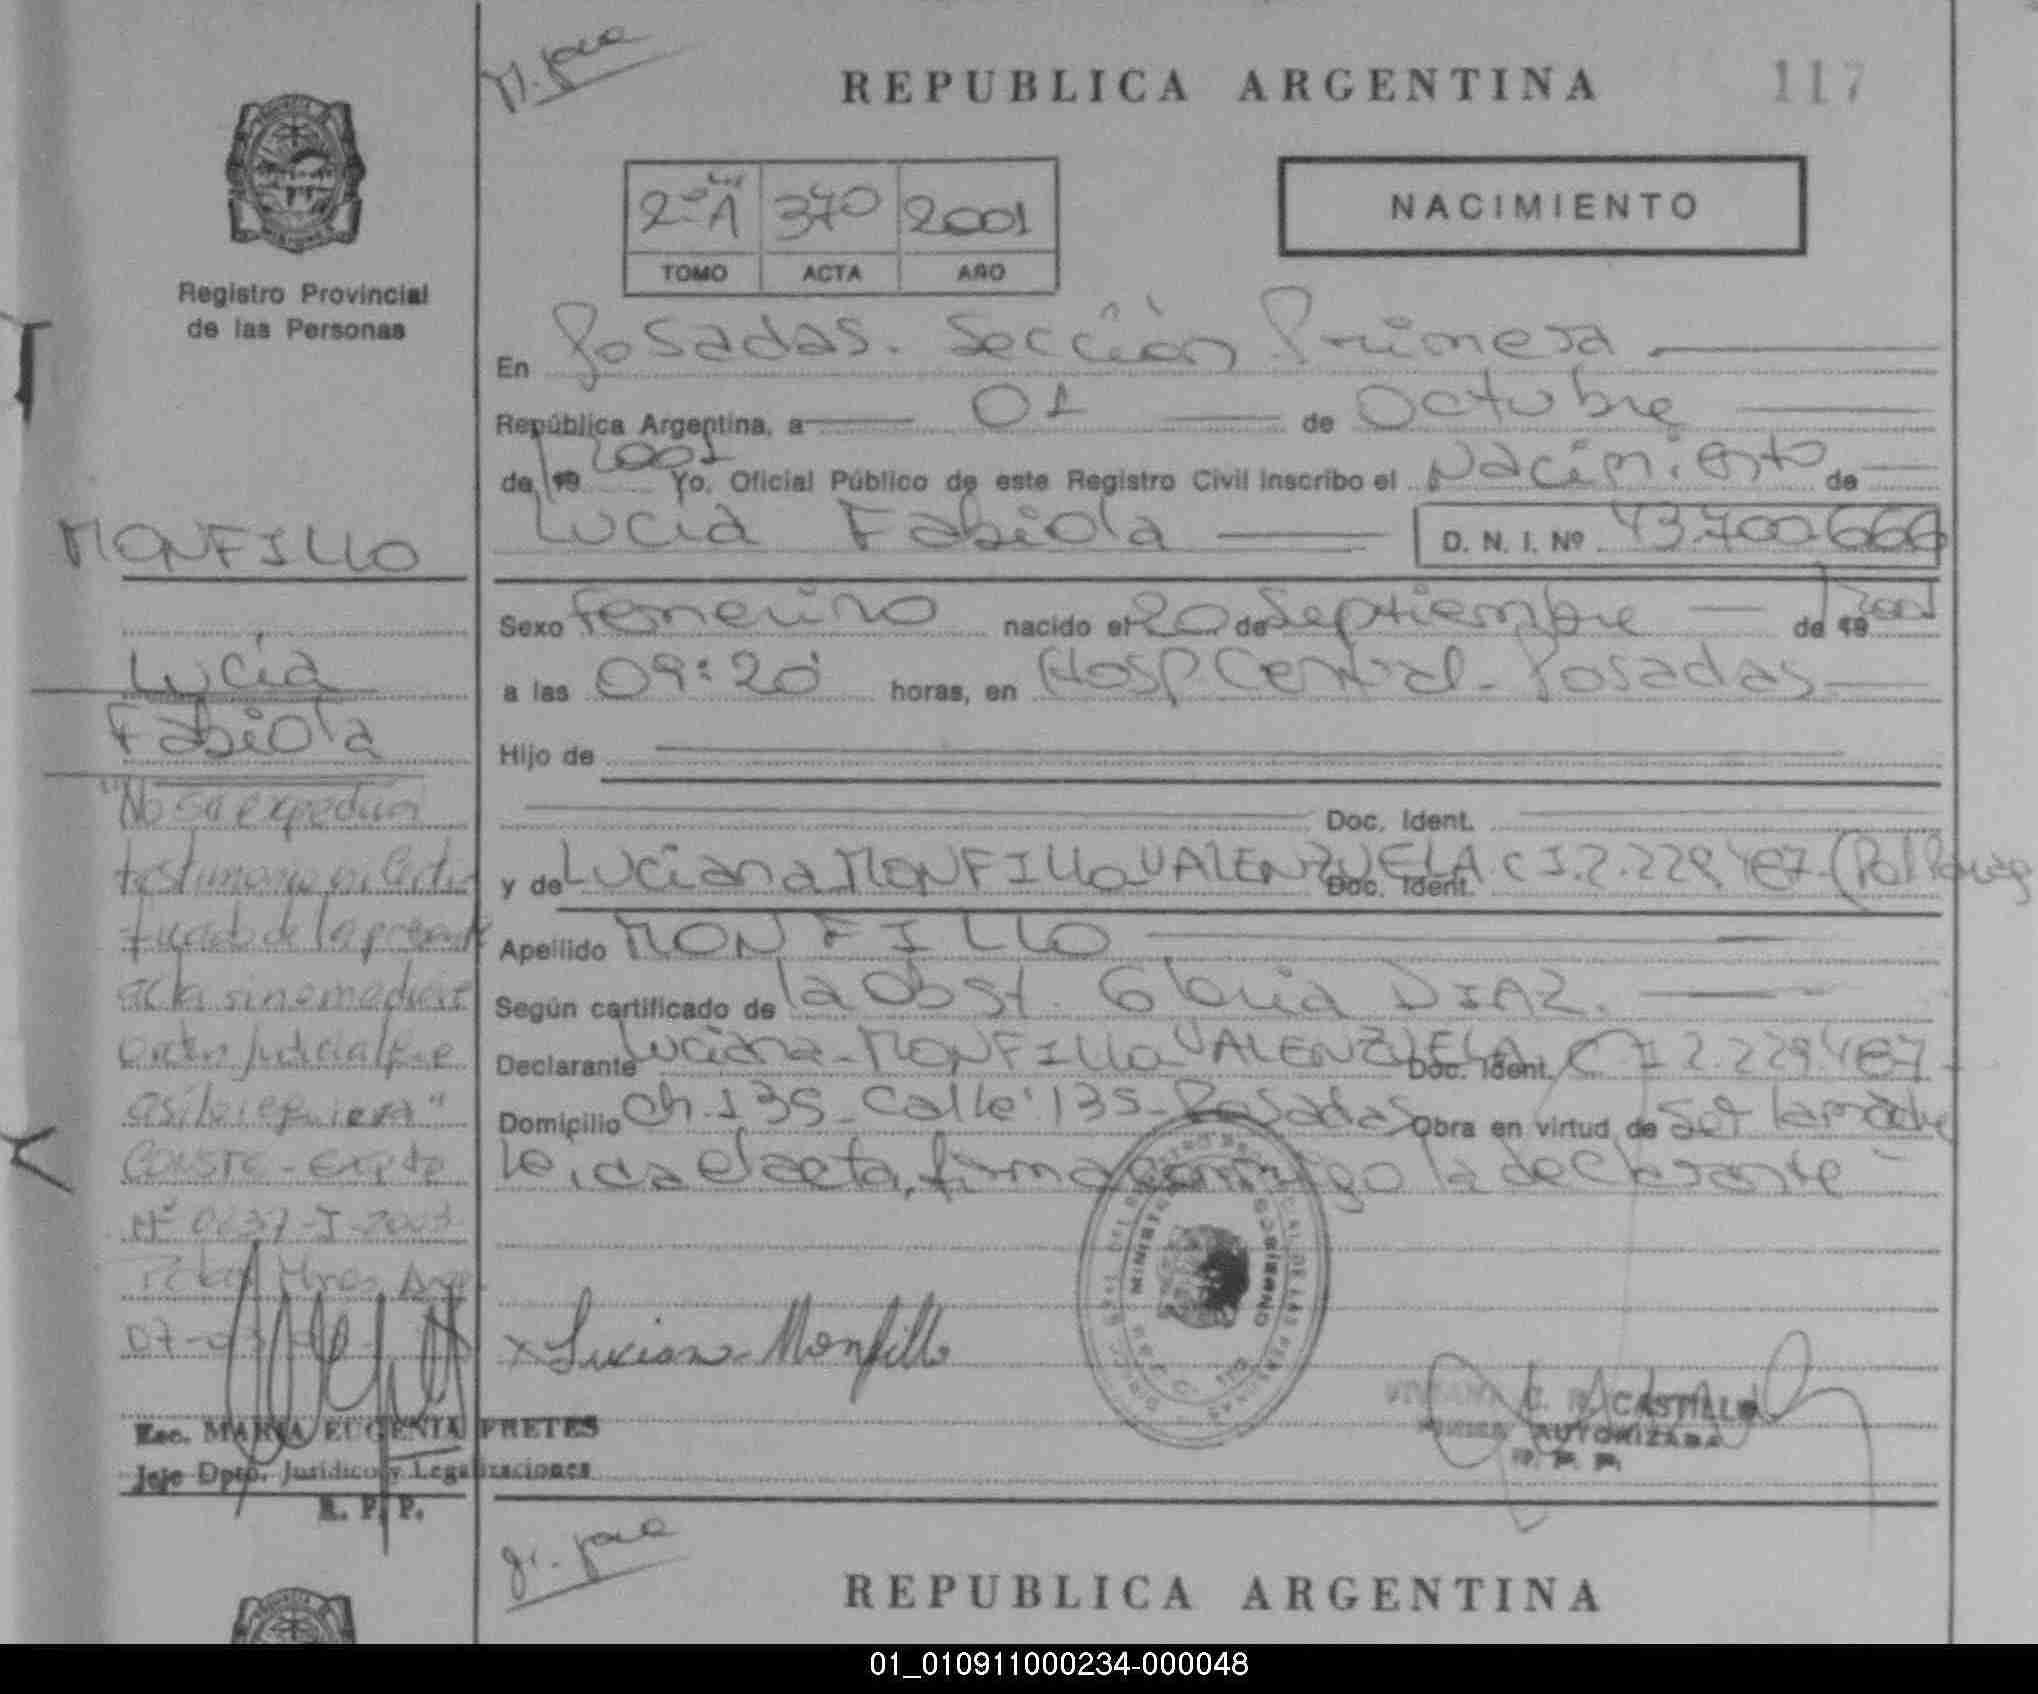 REPUBLICA ARGENTINA
117
2º A 370 2001
TOMO ACTA AÑO
NACIMIENTO
Registro Provincial
de las Personas
En Posadas. Sección Primera
República Argentina, a 01 de Octubre
de 19 2001 Yo, Oficial Público de este Registro Civil inscribo el Nacimiento de
Lucia Fabiola D. N. I. Nº 43.700.666
MONFILLO
Lucia
Fabiola
Sexo femenino nacido el 20 de Septiembre de 19 2001
a las 09:20 horas, en Hosp Central - Posadas
Hijo de
Doc. Ident.
y de Luciana MONFILLO VALENZUELA Doc. Ident. CI 2.229.487 (Pol
Apellido MONFILLO
Según certificado de la Obst. Gloria DIAZ.
Declarante Luciana MONFILLO VALENZUELA Doc. Ident. CI 2.229.487
Domicilio Ch. 135 - Calle 135 - Posadas Obra en virtud de ser la madre
leida el acta, firma conmigo la declarante
"No se expedirá
testimonio ni certi
ficado de la presente
acta sin mediar
orden judicial que
así lo requiera"
CONSTE - Expte
Luciana Monfillo
MINISTERIO GOBIERNO
C. R. CASTILLO
AUTORIZADA
Esc. MARIA EUGENIA PRETES
Jefe Dpto. Jurídico y Legalizaciones
R. P. P.
REPUBLICA ARGENTINA
01_010911000234-000048